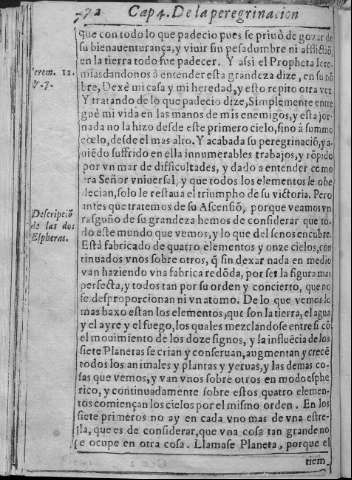 772 Cap 4. De la peregrinacion
que con todo lo que padecio pues se priuò de gozar de
su bienauenturança, y viuir sin pesadumbre ni aflictiõ
en la tierra todo fue padecer. Y assi el Propheta Iere-
mias dandonos à entender esta grandeza dize, en su nõ
Ierem. 12.
bre, Dexè mi casa y mi heredad, y esto repito otra vez
v. 7.
Y tratando de lo que padecio dize, Simplemente entre
guè mi vida en las manos de mis enemigos, y esta jor-
nada no la hizo desde este primero cielo, sino à summo
cœlo, desde el mas alto. Y acabada su peregrinaciõ, ya-
uiẽdo suffrido en ella innumerables trabajos, y rõpido
por vn mar de difficultades, y dado a entender como
era Señor vniuersal, y que todos los elementos le obe
decian, solo le restaua el triumpho de su victoria. Pero
antes que tratemos de su Ascensiõ, porque veamos vn
rasguño de su grandeza hemos de considerar que to-
Descripciõ
do este mundo que vemos, y lo que del se nos encubre.
de las dos
Està fabricado de quatro elementos y onze cielos, con
Espheras.
tinuados vnos sobre otros, q̃ sin dexar nada en medio
van haziendo vna fabrica redõda, por ser la figura mas
perfecta, y todos tan por su orden y concierto, que no
se desproporcionan ni vn atomo. De lo que vemos lo
mas baxo estan los elementos, que son la tierra, el agua
y el ayre y el fuego, los quales mezclandose entre si cõ
el mouimiento de los doze signos, y la influẽcia de los
siete Planetas se crian y conseruan, augmentan y crecẽ
todos los animales y plantas y yeruas, y las demas co-
sas que vemos, y van vnos sobre otros en modo esphe
rico, y continuadamente sobre estos quatro elemen-
tos comiençan los cielos por el mismo orden. En los
siete primeros no ay en cada vno mas de vna estre-
lla, que es de considerar, que vna cosa tan grande no
se ocupe en otra cosa. Llamase Planeta, porque el
tiem